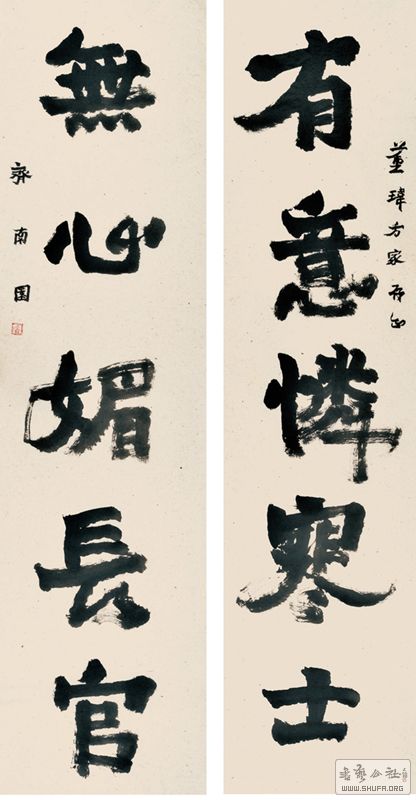 有意憐寒士
董瑋方家存正
無心媚長官
齊南国
書法公社
WWW.SHUFA.ORG